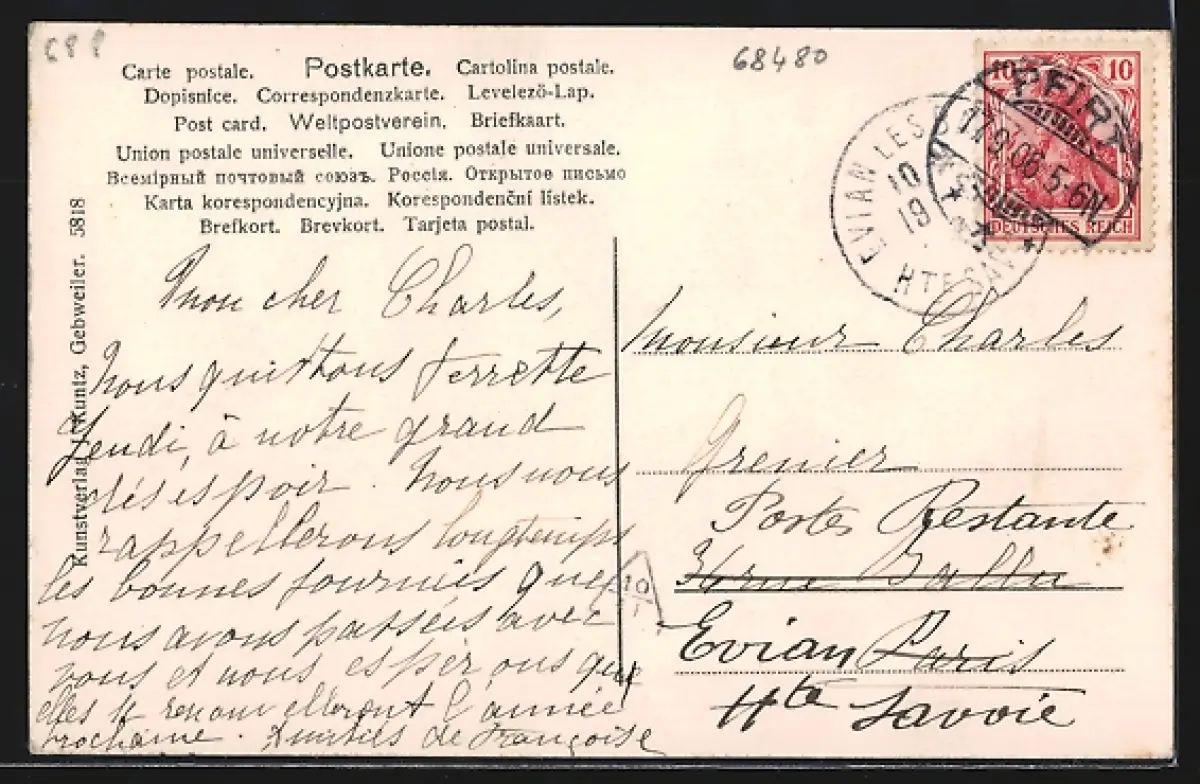 688
68480
Carte postale. Postkarte. Cartolina postale.
Dopisnice. Correspondenzkarte. Levelező-Lap.
Post card. Weltpostverein. Briefkaart.
Union postale universelle. Unione postale universale.
Всемірный почтовый союзъ. Россія. Открытое письмо
Karta korespondencyjna. Korespondenční listek.
Brefkort. Brevkort. Tarjeta postal.
10 10
DEUTSCHES REICH
PFIRT
17.9.06.5-6N
EVIAN LES
10
19
HTE SAV
Kunstverlag J. Kuntz, Gebweiler. 5818
Mon cher Charles,
Nous quittons Ferrette
Jeudi, à notre grand
désespoir. Nous nous
rappellerons longtemps
les bonnes journées que
nous avons passées avec
vous et nous espérons que
elles se renouvelleront l'année
prochaine. Amitiés de Françoise
Monsieur Charles
Grenier
Poste Restante
rue Ballu
Evian Paris
Hte Savoie
10
T